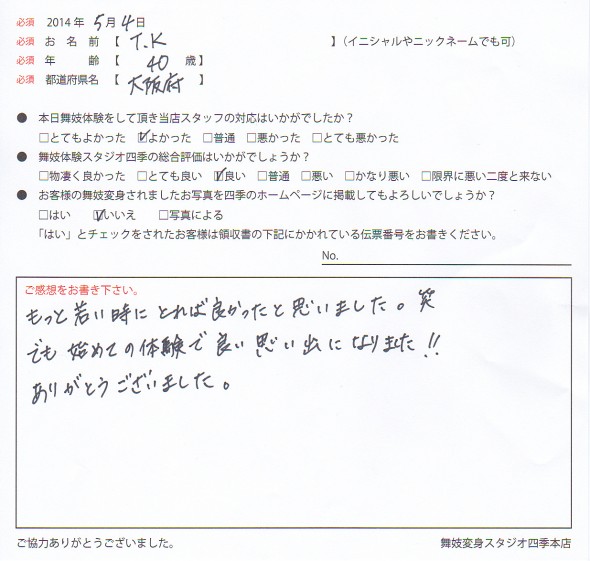 必須 2014年 5月4日
必須 お名前【 T.K 】(イニシャルやニックネームでも可)
必須 年齢【 40 歳】
必須 都道府県名【 大阪府 】
● 本日舞妓体験をして頂き当店スタッフの対応はいかがでしたか?
□とてもよかった ☑よかった □普通 □悪かった □とても悪かった
● 舞妓体験スタジオ四季の総合評価はいかがでしょうか?
□物凄く良かった □とても良い ☑良い □普通 □悪い □かなり悪い □限界に悪い二度と来ない
● お客様の舞妓変身されましたお写真を四季のホームページに掲載してもよろしいでしょうか?
□はい ☑いいえ □写真による
「はい」とチェックをされたお客様は領収書の下記にかかれている伝票番号をお書きください。
No.
ご感想をお書き下さい。
もっと若い時にとれば良かったと思いました。笑
でも始めての体験で良い思い出になりました!!
ありがとうございました。
ご協力ありがとうございました。 舞妓変身スタジオ四季本店